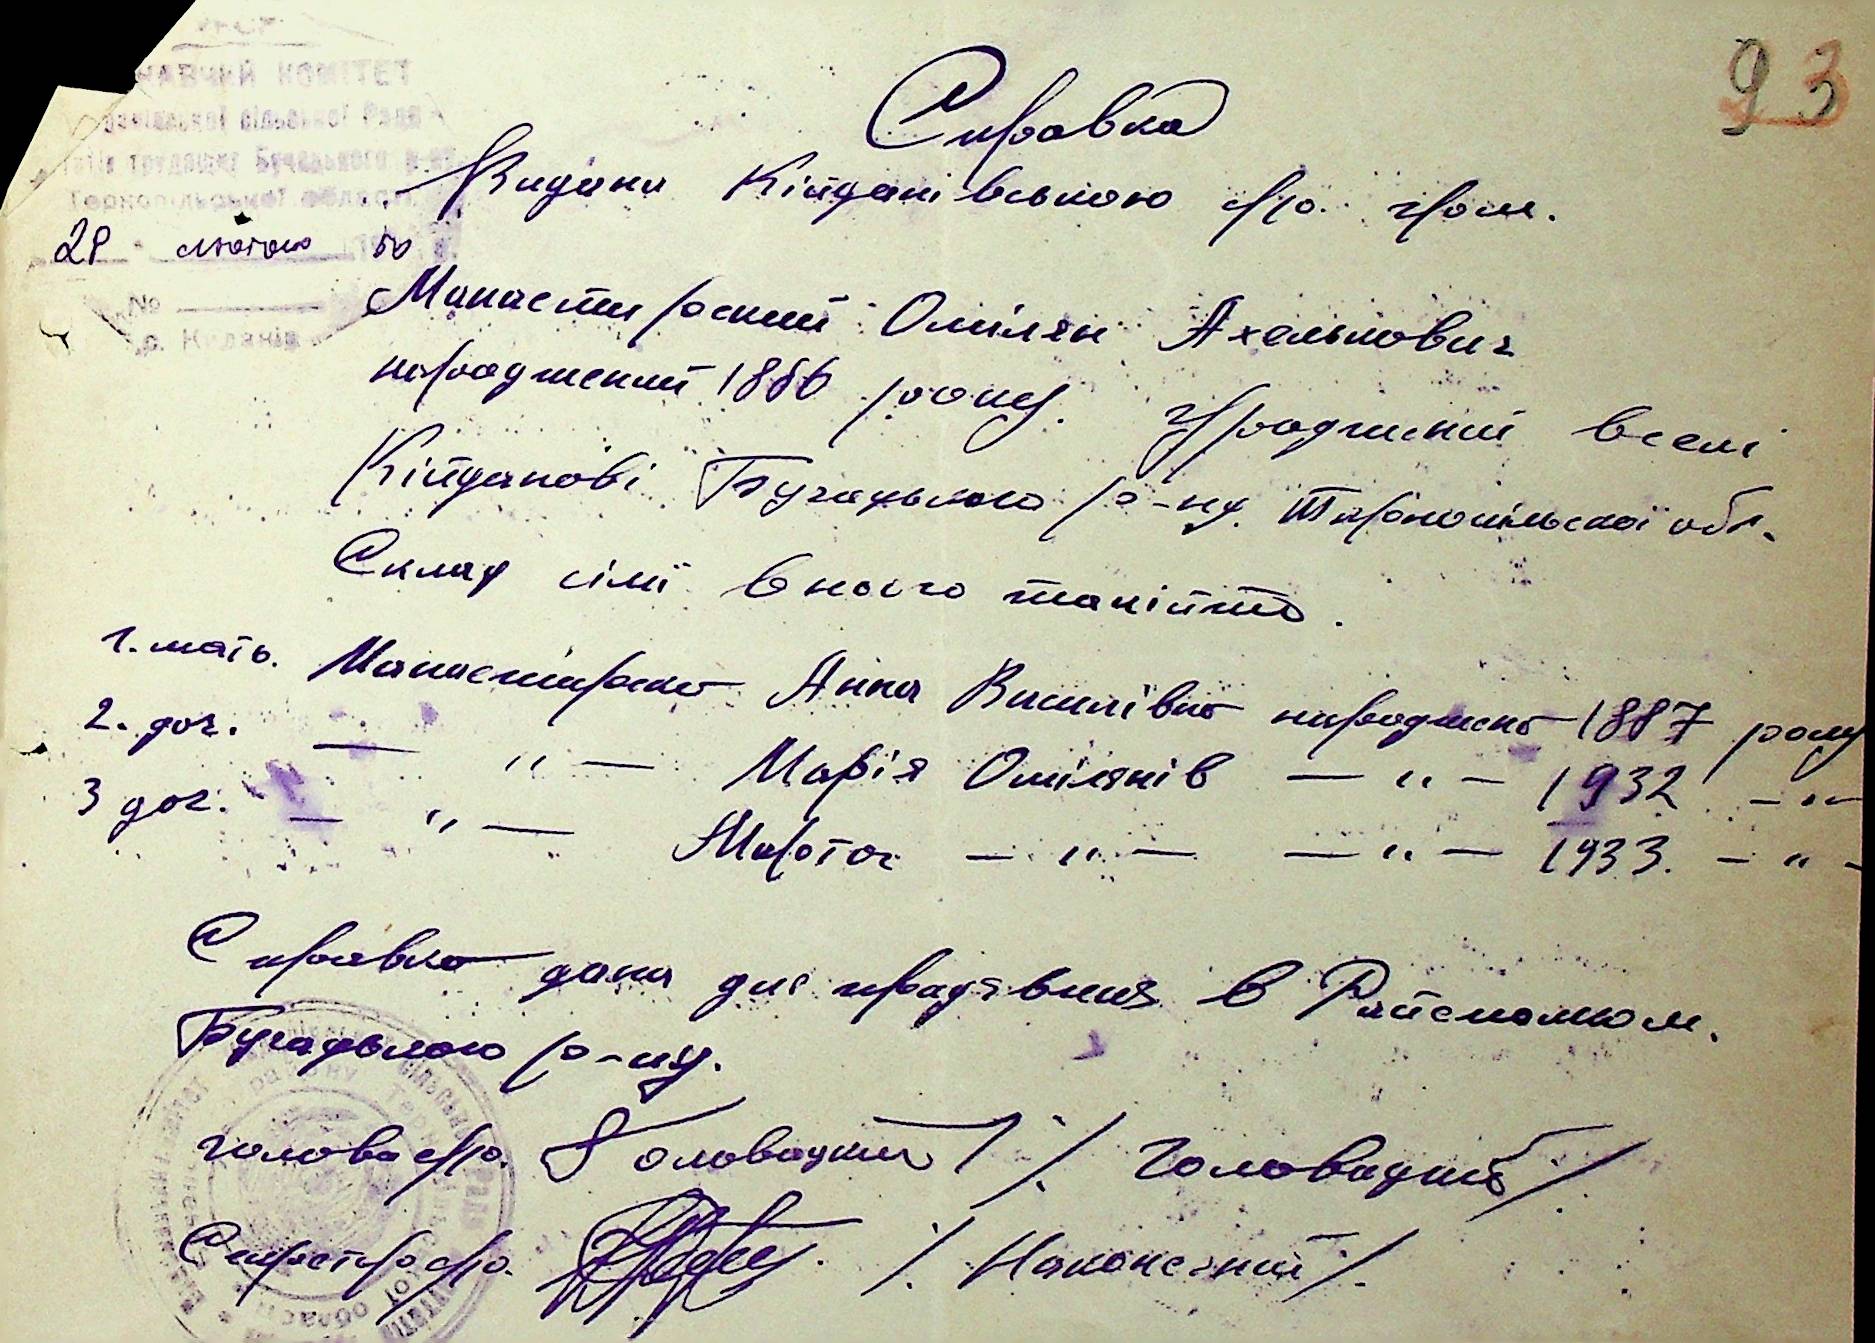 УРСР
ЧИЙ КОМІТЕТ
сільської Ради
трудящих Бучацького
Тернопільської області
28 лютого 50
№
93
Справка
Видана Кійданівською с/р. гром.
Манастирский Омілян Ахельмович
нарадженій 1886 року. урадженій вселі
Кійданові Бучацького р-ну. Тарнопільскої обл.
Склад сімї внього такійто.
1. мать. Манастірска Анна Василівна нараджена 1887 року
2. доч. — " — Марія Омілянів — " — 1932 — " —
3 доч. — " — Марта — " — — " — 1933. — " —
Справка дана для предявлия в Райсполком.
Бучацького р-ну.
голова с/р. Головацкий / Головацкий /.
Секретр с/р. / Наконечний /.